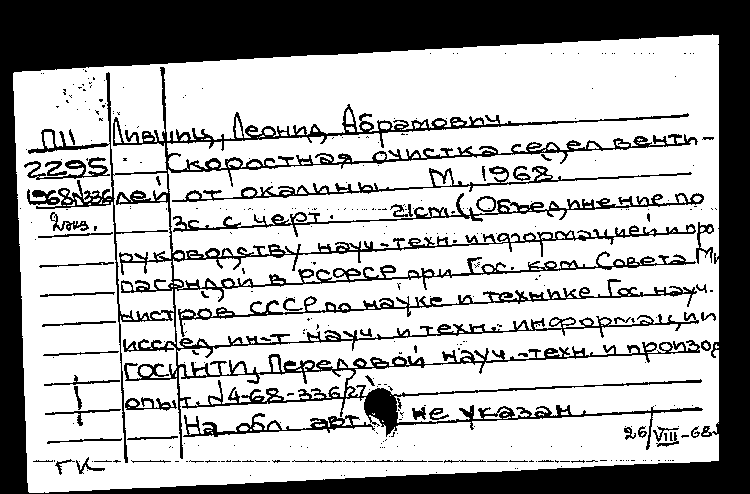 ПII Лившиц, Леонид Абрамович.
2295 Скоростная очистка седел венти-
1968N336 лей от окалины. М., 1968.
2экз. 3с. с черт. 21см. (Объединение по
руководству науч.-техн. информацией и про
пагандой в РСФСР при Гос. ком. Совета Ми
нистров СССР по науке и технике. Гос. науч.
исслед. ин-т науч. и техн. информации
ГОСИНТИ, Передовой науч.-техн. и производ
опыт. N4-68-336/27
На обл. авт. не указан.
26/VIII-68
ГК